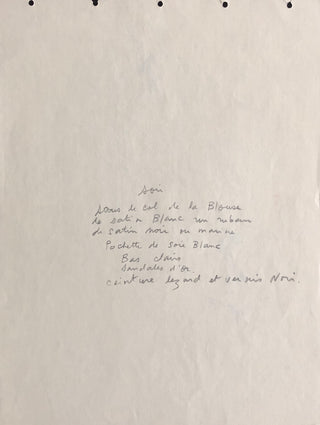 Soir
sous le col de la Blouse
de satin Blanc un ruban
de satin noir ou marine
Pochette de soie Blanc
Bas clairs
sandales d'or
ceinture lezard et vernis Noir.